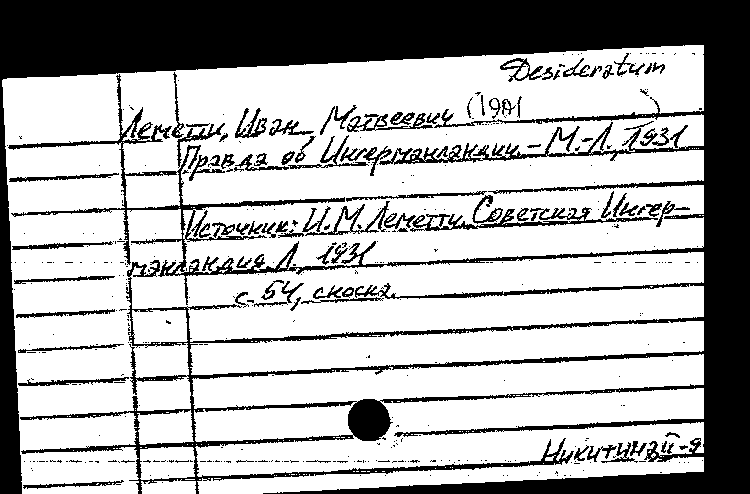 Desideratum
Леметти, Иван Матвеевич (1901 )
Правда об Ингерманландии. - М.-Л., 1931
Источник: И.М. Леметти. Советская Ингер-
манландия. Л., 1931
с. 54, сноска.
Никитина